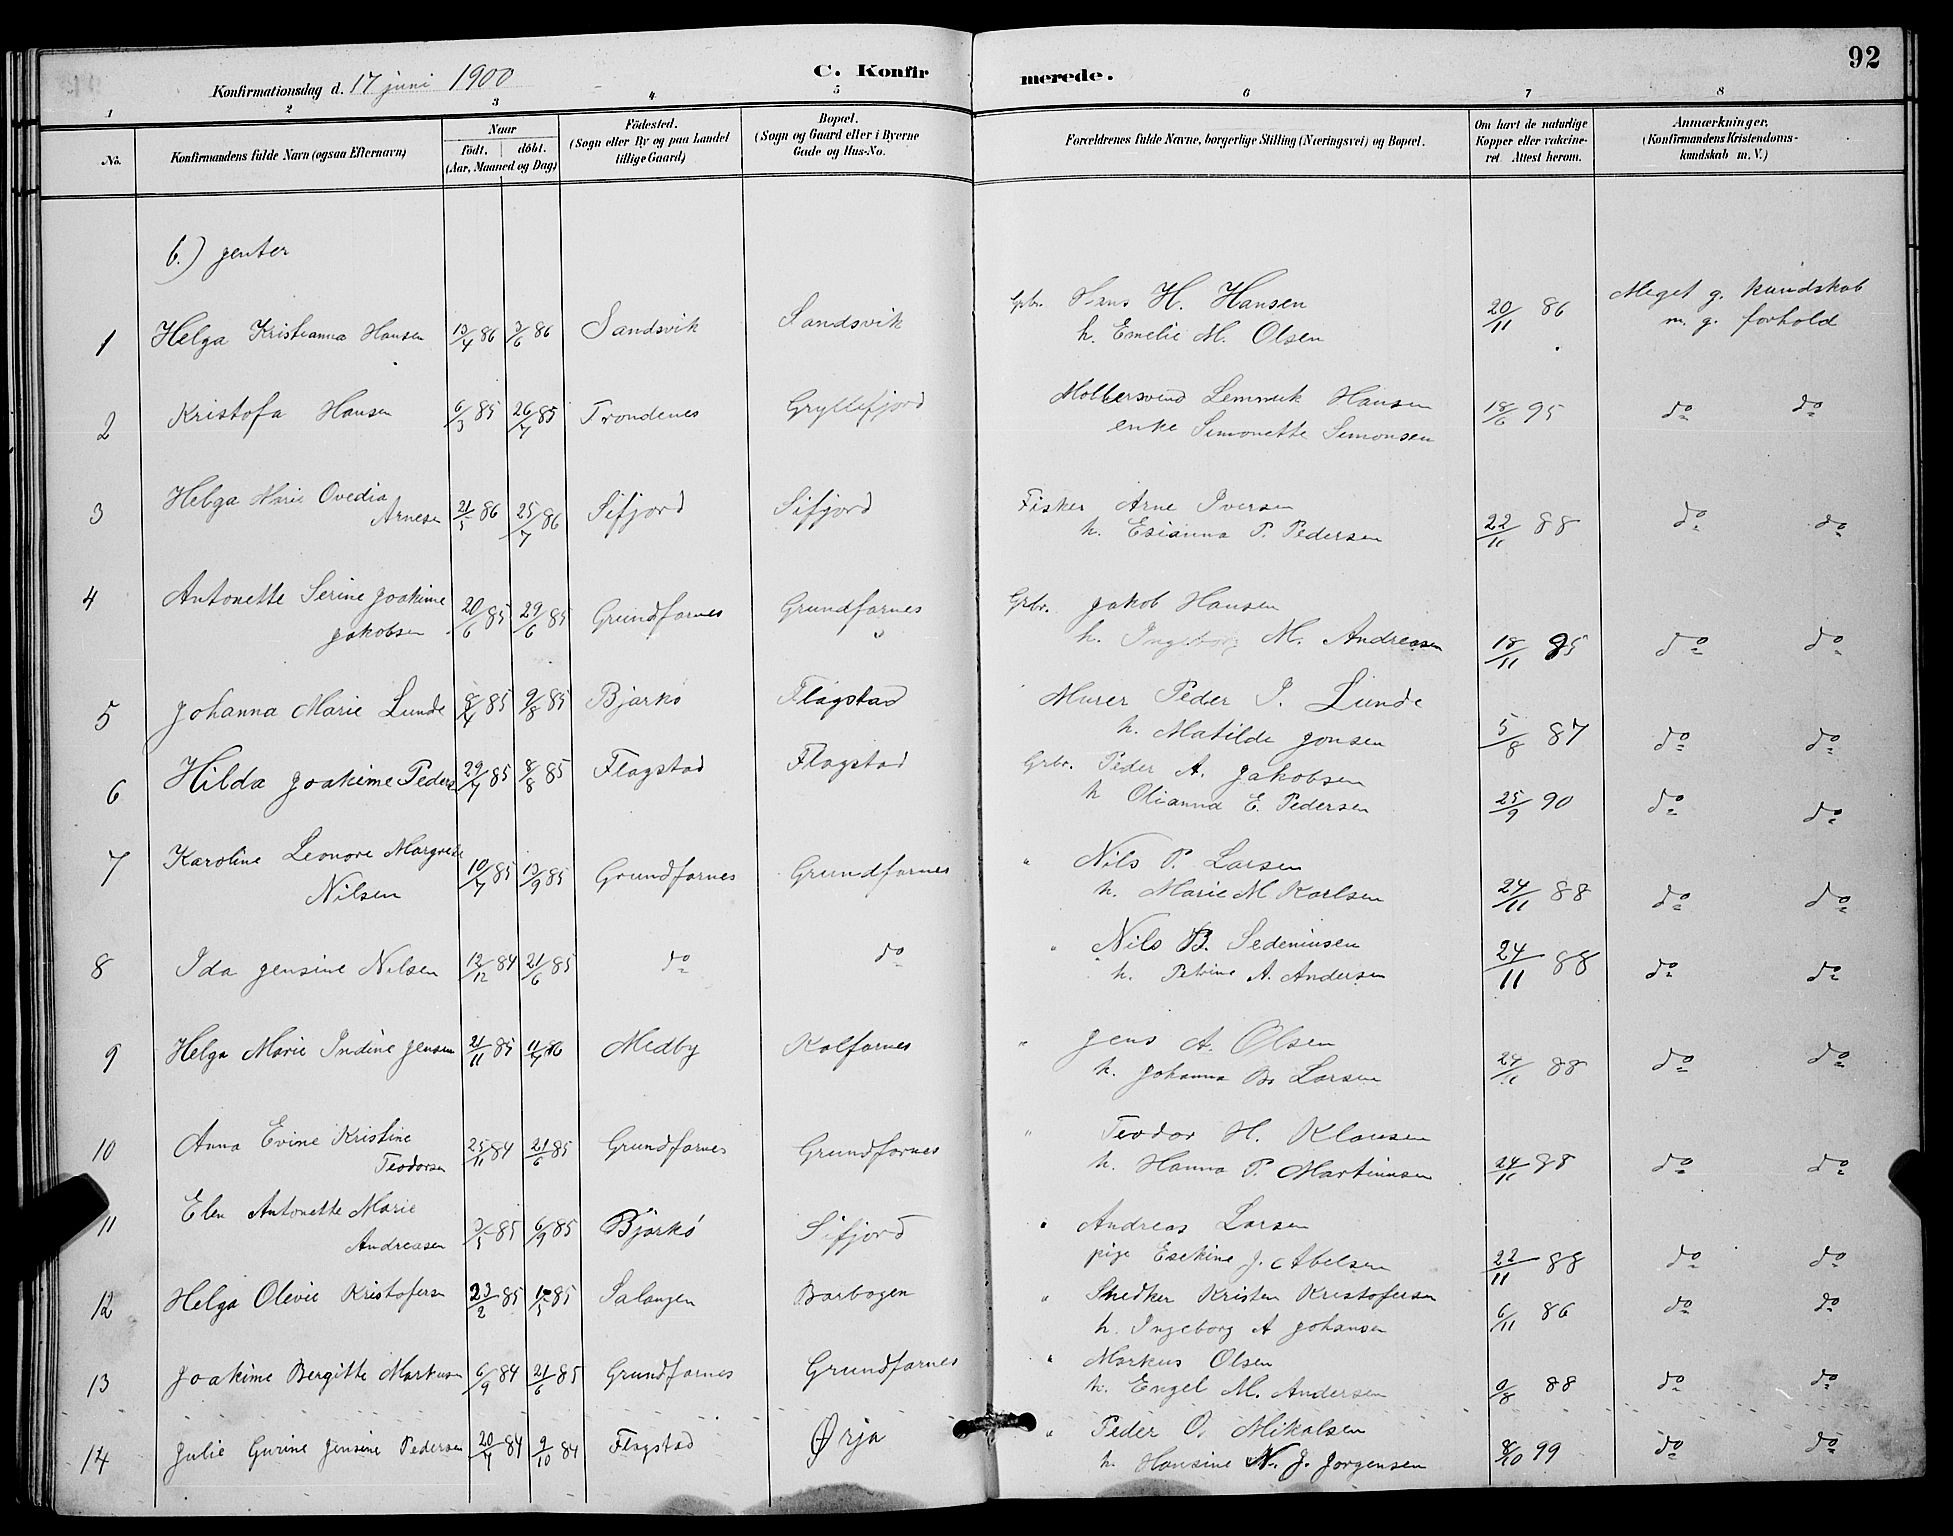 92
Konfirmationsdag d. 17 juni 1900 C. Konfirmerede.
1 2 3 4 5 6 7 8
No. Konfirmandens fulde Navn (ogsaa Efternavn) Naar født, døbt. (Aar, Maaned og Dag) Fødested. (Sogn eller By og paa Landet tillige Gaard) Bopæl. (Sogn og Gaard eller i Byerne Gade og Hus-No. Forældrenes fulde Navne, borgerlige Stilling (Næringsvei) og Bopæl. Om havt de naturlige Kopper eller vakcineret Attest herom. Anmærkninger. (Konfirmandens Kristendomskundskab m. V.)
b.) jenter
1 Helga Kristianna Hansen 13/4 86 3/6 86 Sandsvik Sandsvik Grbr. Hans H. Hansen 20/11 86 Meget g. kundskab
h. Emelie M. Olsen m. g. forhold
2 Kristofa Hansen 6/3 85 26/7 85 Trondenes Gryllefjord Lemmik Hansen 18/6 95 do do
enke Simonette Simonsen
3 Helga Marie Ovedia 21/5 86 25/7 86 Sifjord Sifjord Fisker Arne Iversen 22/11 88 do do
Arnesen h. Esianna P. Pedersen
4 Antonette Serine Joakime 20/6 85 29/6 85 Grundfarnes Grundfarnes Grbr. Jakob Hansen
Jakobsen h. Ingeborg M. Andreasen 18/11 95 do do
5 Johanna Marie Lunde 8/4 85 9/8 85 Bjarkø Flagstad Murer Peder J. Lunde
h. Matilde Jonsen 5/8 87 do do
6 Hilda Joakime Peders 29/7 85 8/8 85 Flagstad Flagstad Grbr. Peder A. Jakobsen
h Olianna E. Pedersen 25/9 90 do do
7 Karoline Leonore Margrete 10/7 85 13/9 85 Grundfarnes Grundfarnes " Nils P. Larsen
Nilsen h. Marie M Karlsen 24/11 88 do do
8 Ida Jensine Nilsen 12/12 84 21/6 85 do do " Nils B. Sedeninsen 24/11 88 do do
h. Petrine A. Andersen
9 Helga Marie Indine Jensen 21/11 85 11/4 86 Medby Kalfarnes " Jens A. Olsen
h. Johanna B. Larsen 24/11 88 do do
10 Anna Evine Kristine 25/11 84 21/6 85 Grundfarnes Grundfarnes " Teodor H. Klausen
Teodorsen h. Hanna P. Martinusen 24/11 98 do do
11 Elen Antonette Marie 3/5 85 6/9 85 Bjarkø Sifjord " Andreas Larsen
Andreasen pige Esekine J. Abelsen 22/11 88 do do
12 Helga Olevie Kristofersen 23/2 85 85 Salangen Barbogen " Snedker Kristen Kristofersen
h. Ingeborg A Johansen 6/11 86 do do
13 Joakime Bergitte Markusen 6/9 84 21/6 85 Grundfarnes Grundfarnes " Markus Olsen
h. Engel M. Andersen 9/8 88 do do
14 Julie Gurine Jensine Pedersen 20/7 84 9/10 84 Flagstad Ørja " Peder O. Mikalsen
h. Hansine N. J. Jorgensen 8/10 99 do do